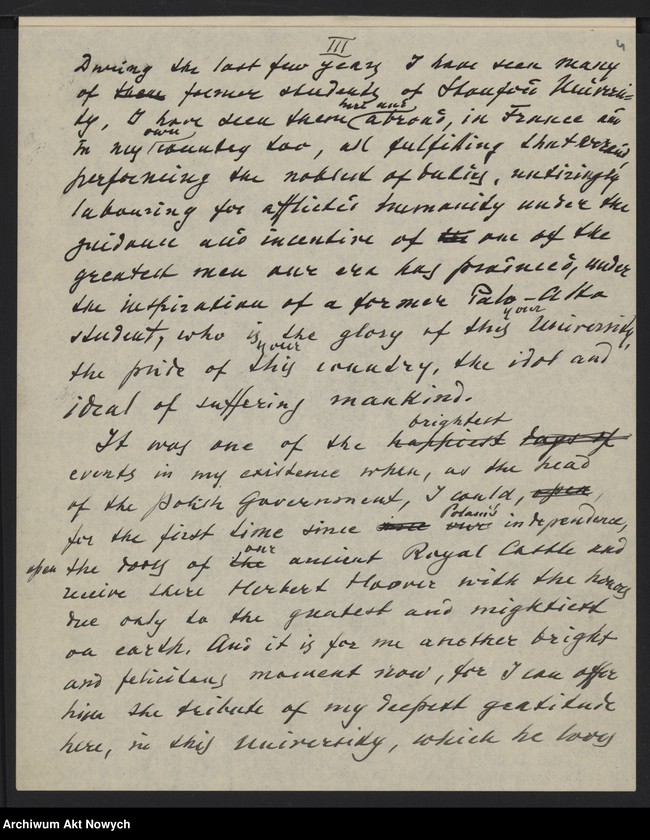 III
4
During the last few years I have seen many
of them former students of Stanford Universi-
ty, I have seen them here and abroad, in France and
in my own country too, all fulfilling that errand,
performing the noblest of duties, untiringly
labouring for afflicted humanity under the
guidance and incentive of the one of the
greatest men our era has produced, under
the inspiration of a former Palo-Alto
student, who is the glory of this your University,
the pride of this your country, the idol and
ideal of suffering mankind.
It was one of the happiest brightest days of
events in my existence when, as the head
of the Polish Government, I could, open,
for the first time since our Poland's independence,
open the doors of the our ancient Royal Castle and
receive there Herbert Hoover with the honors
due only to the greatest and mightiest
on earth. And it is for me another bright
and felicitous moment now, for I can offer
him the tribute of my deepest gratitude
here, in this University, which he loves
Archiwum Akt Nowych